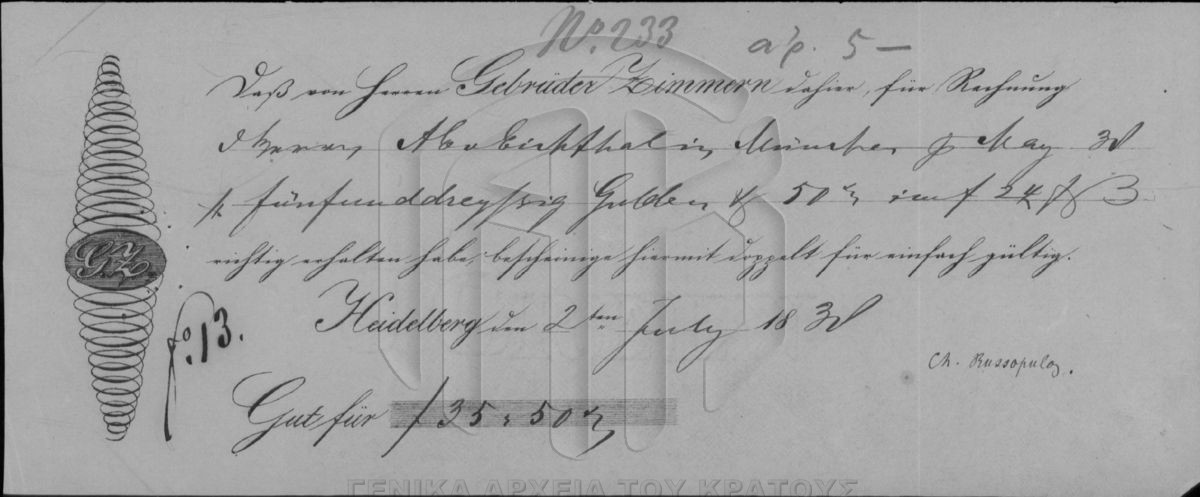 No. 233 αρ. 5 —
Daß von Herren Gebrüder Zimmern dahier, für Rechnung
München May
fünfunddreyssig Gulden 50 im f 24
richtig erhalten habe, bescheinige hiermit doppelt für einfach gültig.
G.Z.
Heidelberg den 2ten July 18
fo. 13.
Ch. Russopulos.
Gut für f 35 " 50
ΓΕΝΙΚΑ ΑΡΧΕΙΑ ΤΟΥ ΚΡΑΤΟΥΣ